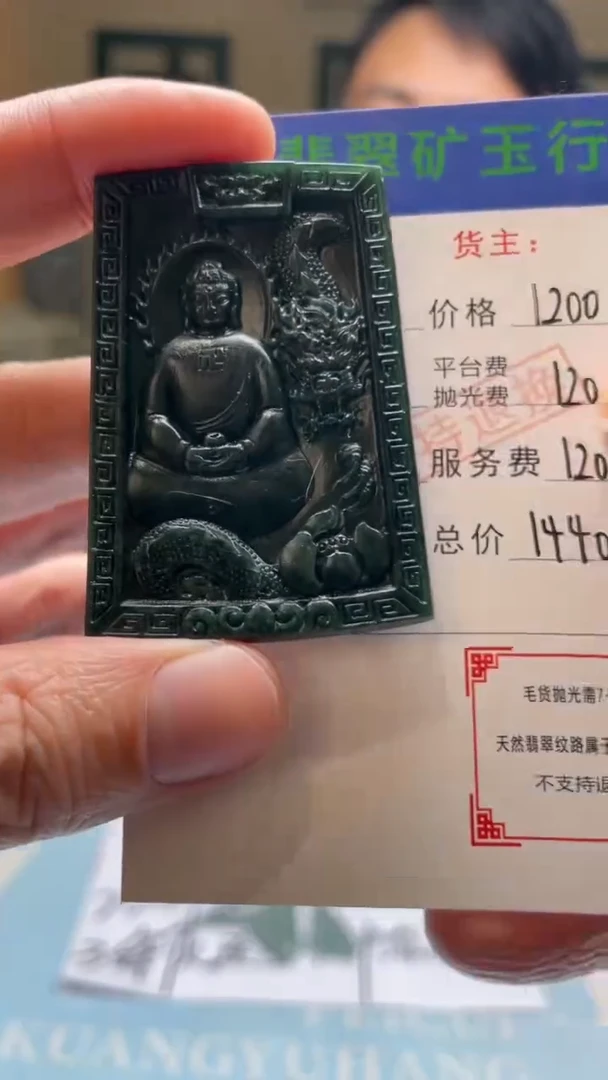 翡翠矿玉行
货主：
价格 1200
平台费
抛光费 120
服务费 120
总价 1440
毛货抛光需7
天然翡翠纹路属
不支持退
KUANGYUHANG